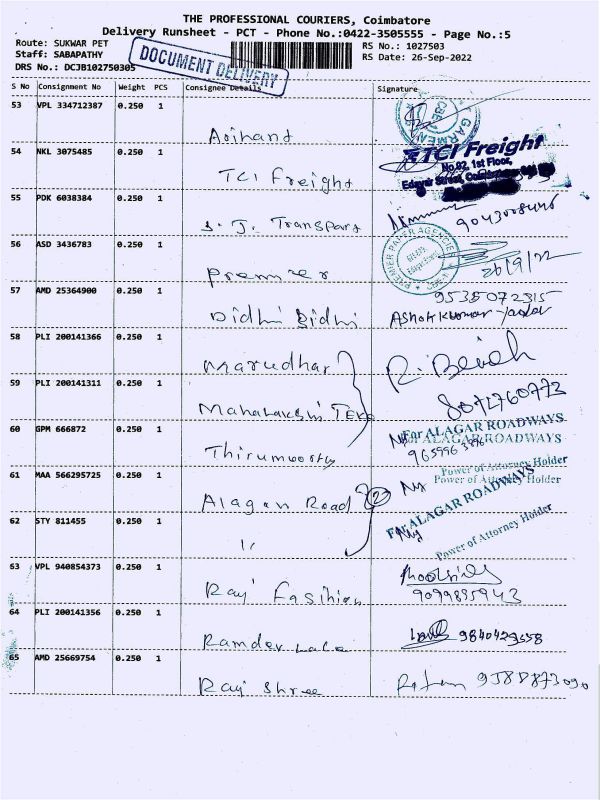 THE PROFESSIONAL COURIERS, Coimbatore
Delivery Runsheet - PCT - Phone No.:0422-3505555 - Page No.:5
Route: SUKWAR PET
Staff: SABAPATHY
DRS No.: DCJB102750305
DOCUMENT DELIVERY
RS No.: 1027503
RS Date: 26-Sep-2022
S No Consignment No Weight PCS Consignee Details Signature
53 VPL 334712387 0.250 1 Arihant
54 NKL 3075485 0.250 1 TCI Freight
TCI Freight
No.92, 1st Floor,
55 PDK 6038384 0.250 1 S. J. Transport
56 ASD 3436783 0.250 1 Premier
PREMIER PAPER AGENCIES
26/9/22
57 AMD 25364900 0.250 1 Didhi Sidhi
9535072315
58 PLI 200141366 0.250 1 Marudhar
59 PLI 200141311 0.250 1 Mahalakshmi Tex
60 GPM 666872 0.250 1 Thirumoorthy
For ALAGAR ROADWAYS
For ALAGAR ROADWAYS
Power of Attorney Holder
Power of Attorney Holder
61 MAA 566295725 0.250 1 Alagar Road (2)
For ALAGAR ROADWAYS
Power of Attorney Holder
62 STY 811455 0.250 1 "
63 VPL 940854373 0.250 1 Raj Fashion
9099895943
64 PLI 200141356 0.250 1 Ramdev Lace
65 AMD 25669754 0.250 1 Raj Shree